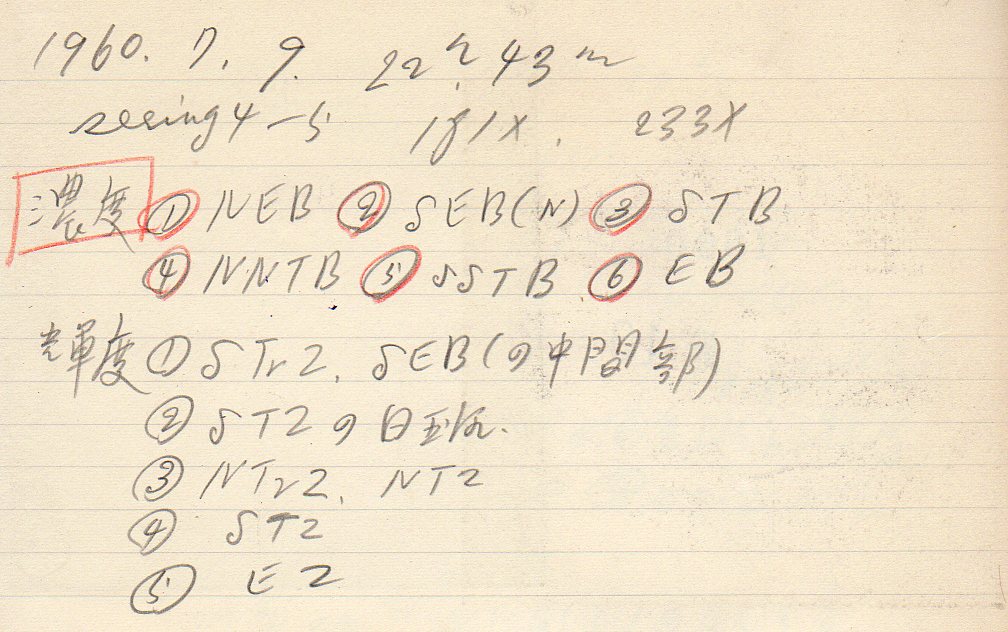 1960. 7. 9. 22h 43m
seeing 4-5 181X. 233X
濃度 ① NEB ② SEB(N) ③ STB
④ NNTB ⑤ SSTB ⑥ EB
輝度 ① STrZ. SEB(の中間部)
② STZの白斑.
③ NTrZ. NTZ
④ STZ
⑤ EZ